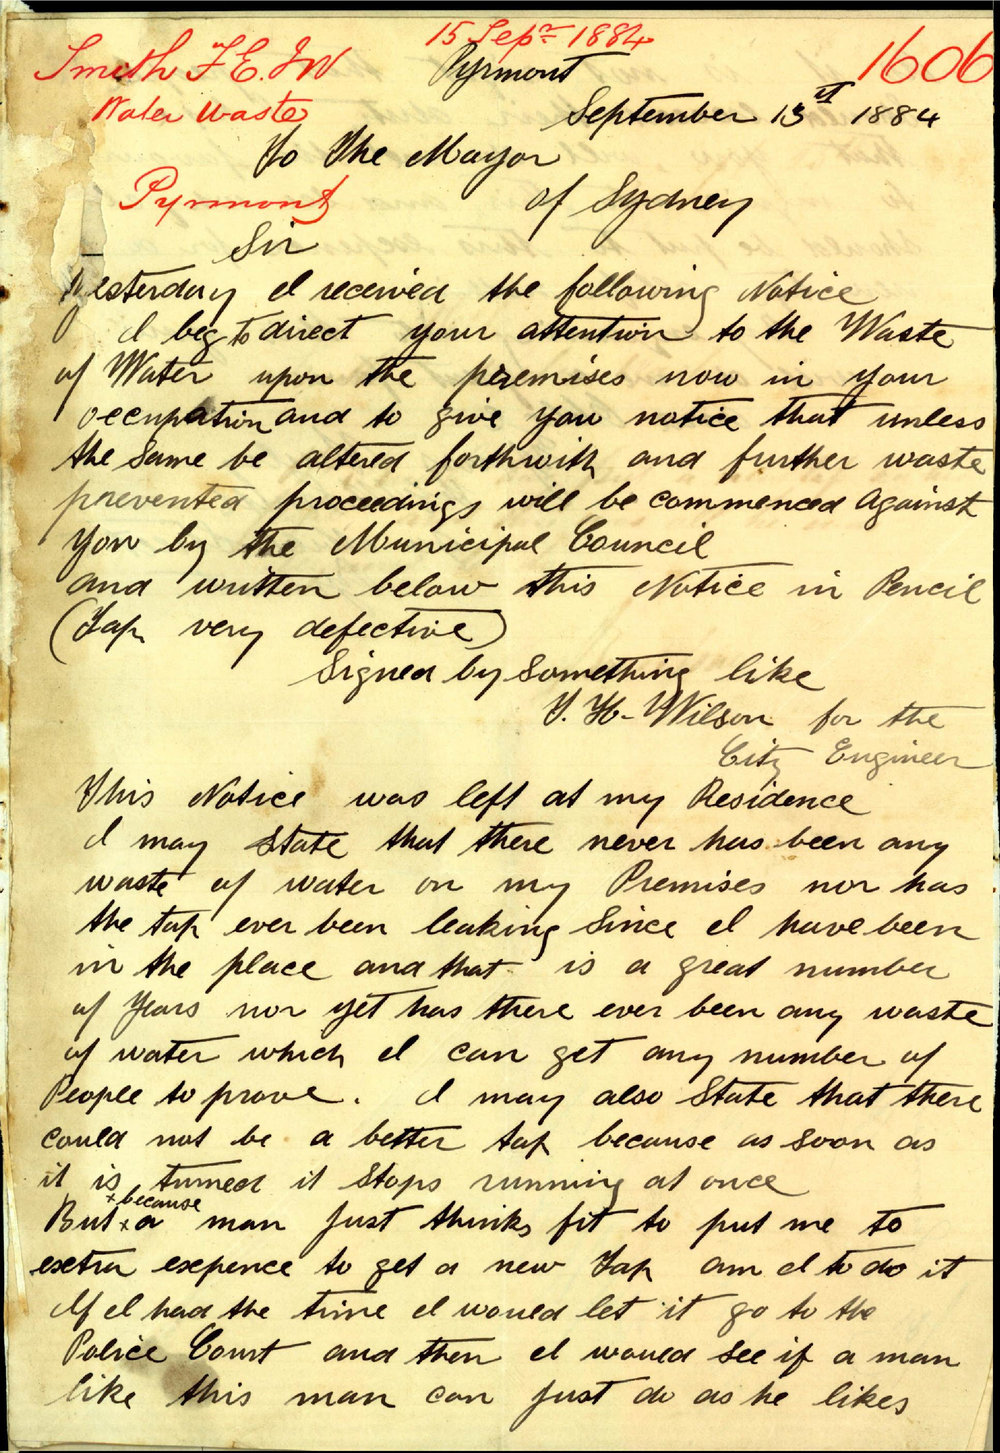 15 Sepr 1884
Smith F. E. J W
Pyrmont
1606
Water Waste
September 13st 1884
To The Mayor
Pyrmont
of Sydney
Sir
Yesterday I received the following Notice
I beg to direct your attention to the Waste
of Water upon the premises now in your
occupation and to give you notice that unless
the same be altered forthwith and further waste
prevented proceedings will be commenced against
you by the Municipal Council
and written below this Notice in Pencil
(Tap very defective)
Signed by something like
T. H. Wilson for the
City Engineer
This Notice was left at my Residence
I may state that there never has been any
waste of water on my Premises nor has
the tap ever been leaking since I have been
in the place and that is a great number
of Years nor yet has there ever been any waste
of water which I can get any number of
People to prove. I may also State that there
could not be a better tap because as soon as
it is turned it stops running at once
x because
But x a man just thinks fit to put me to
extra expence to get a new Tap am I to do it
If I had the time I would let it go to the
Police Court and then I would see if a man
like this man can just do as he likes